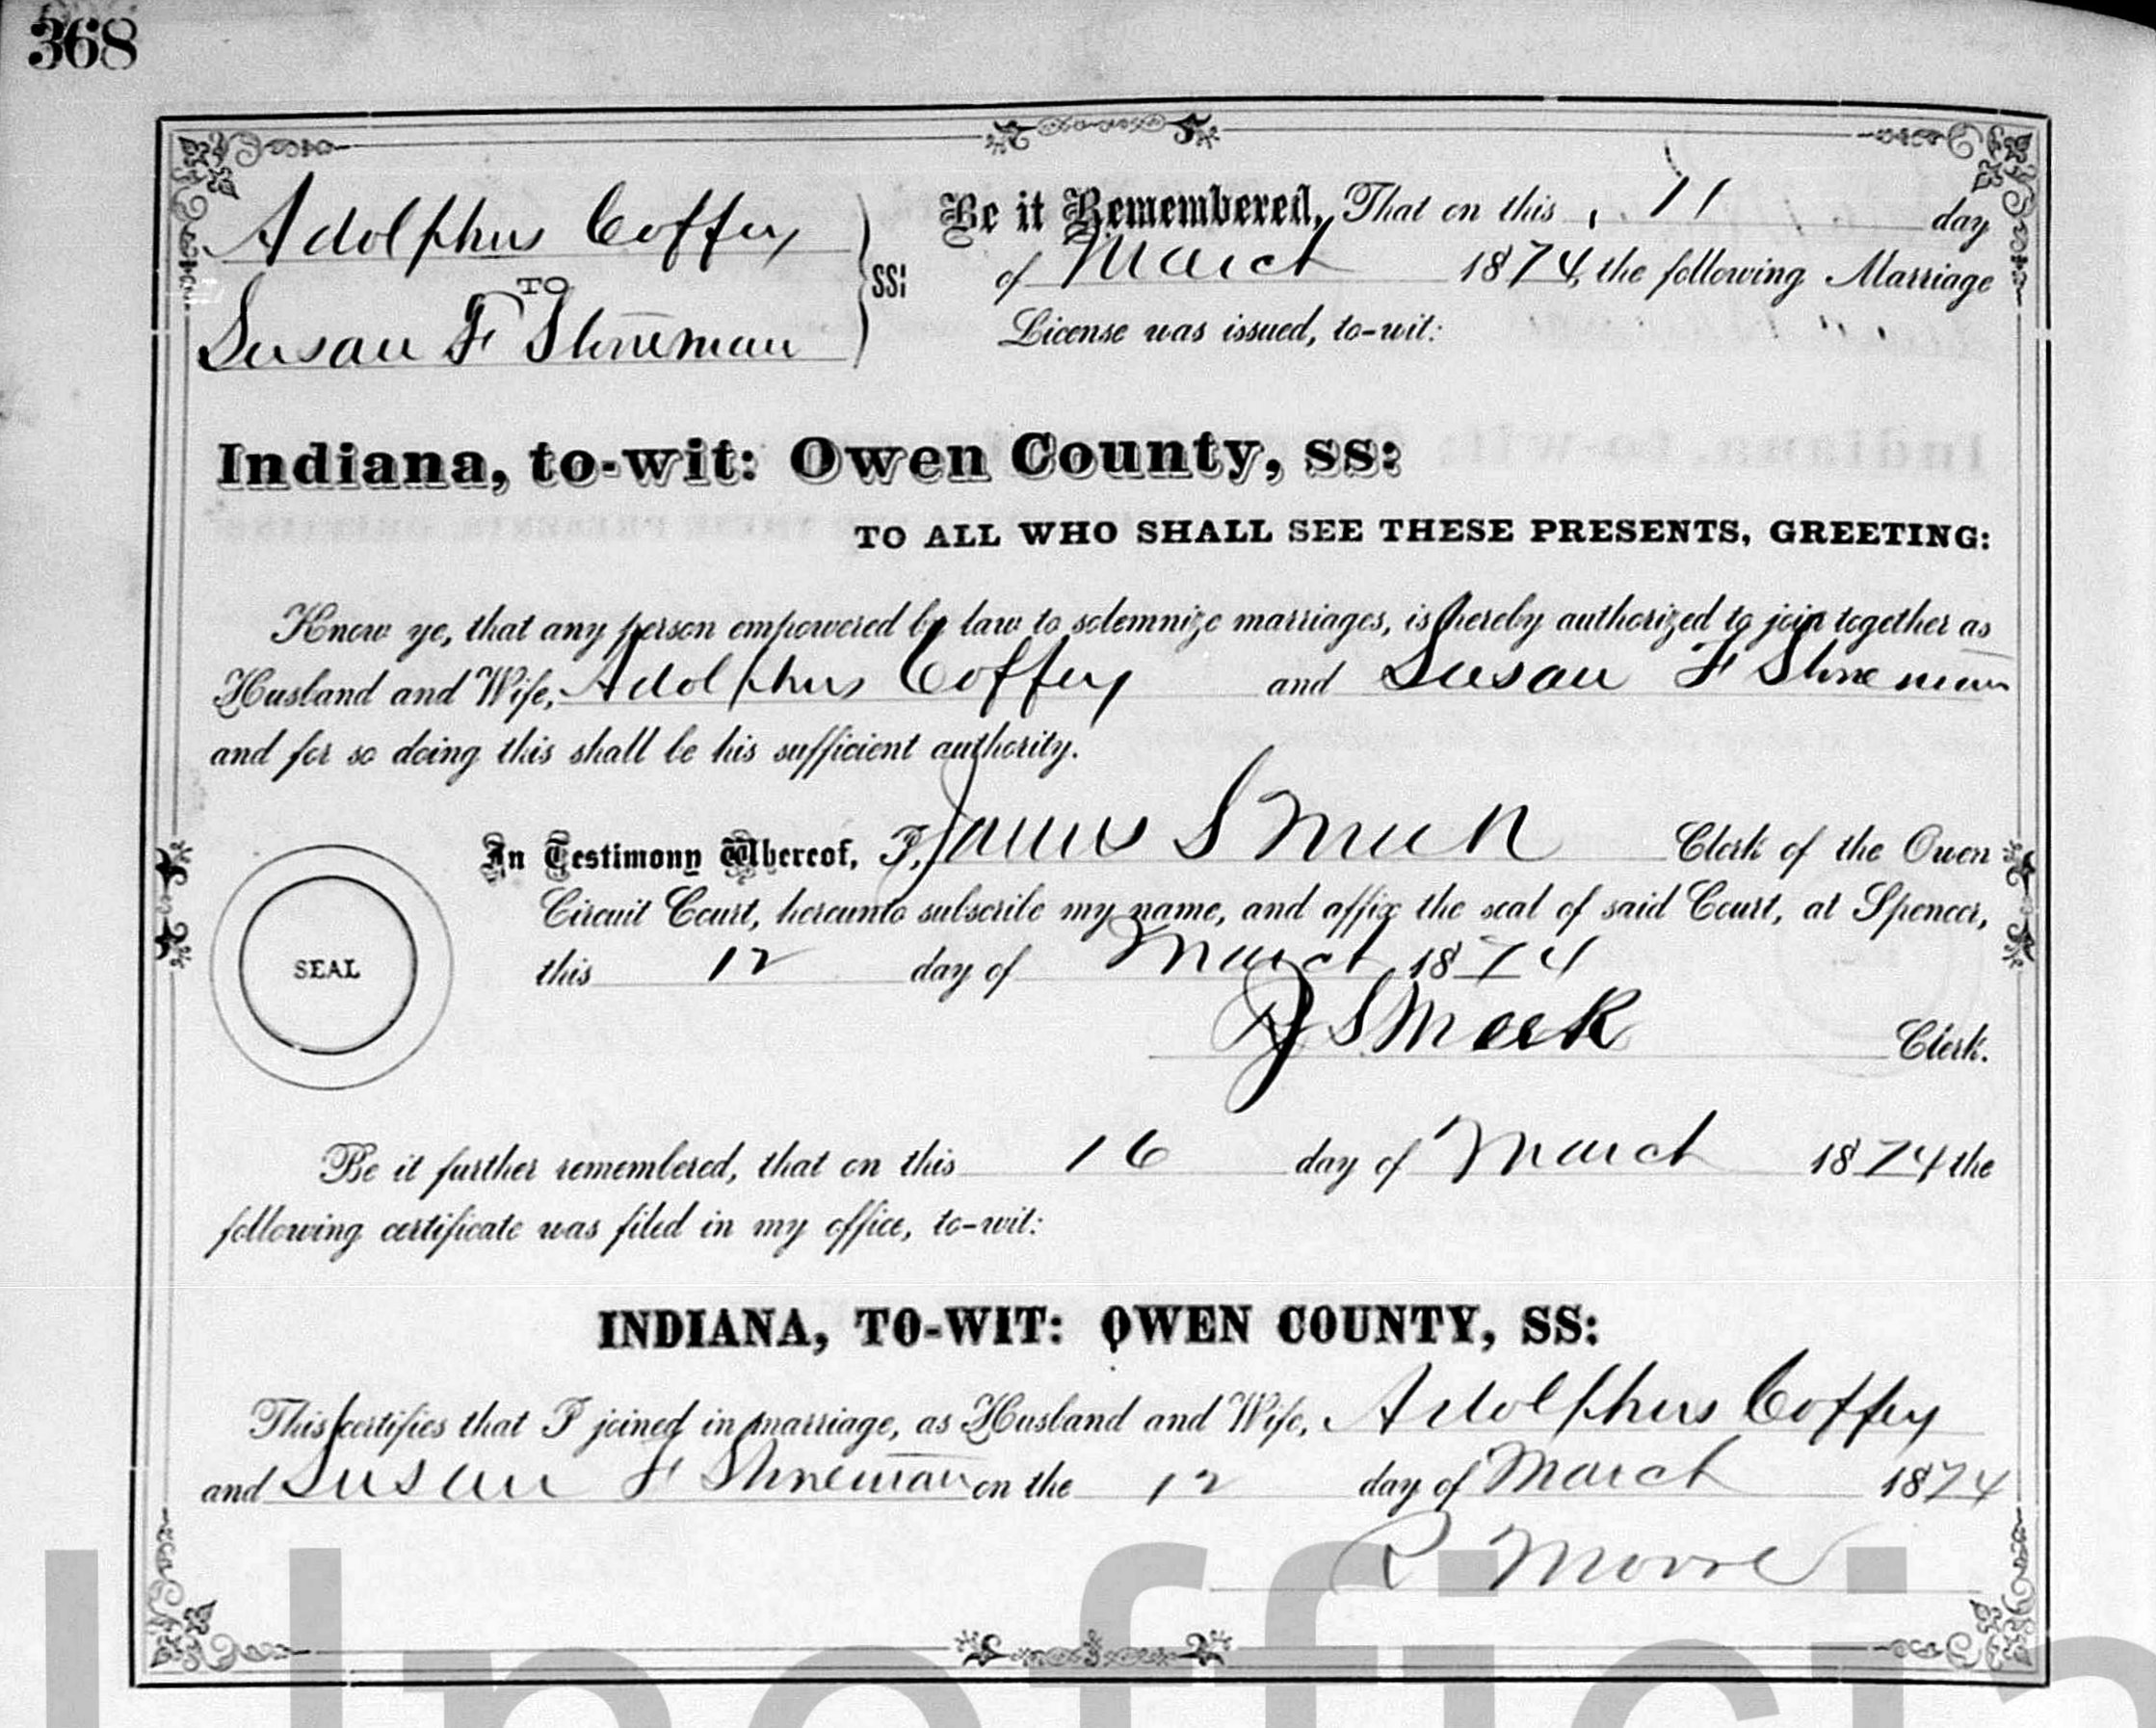 368
Adolphus Coffey
TO
Susan F
SS:
Be it Remembered, That on this 11 day
of March 1874, the following Marriage
License was issued, to-wit:
Indiana, to-wit: Owen County, ss:
TO ALL WHO SHALL SEE THESE PRESENTS, GREETING:
Know ye, that any person empowered by law to solemnize marriages, is hereby authorized to join together as
Husband and Wife, Adolphus Coffey and Susan F
and for so doing this shall be his sufficient authority.
In Testimony Whereof, I, James S Meek Clerk of the Owen
Circuit Court, hereunto subscribe my name, and affix the seal of said Court, at Spencer,
SEAL
this 12 day of March 1874
J S Meek Clerk.
Be it further remembered, that on this 16 day of March 1874 the
following certificate was filed in my office, to-wit:
INDIANA, TO-WIT: OWEN COUNTY, SS:
This certifies that I joined in marriage, as Husband and Wife, Adolphus Coffey
and Susan F on the 12 day of March 1874
R Moore